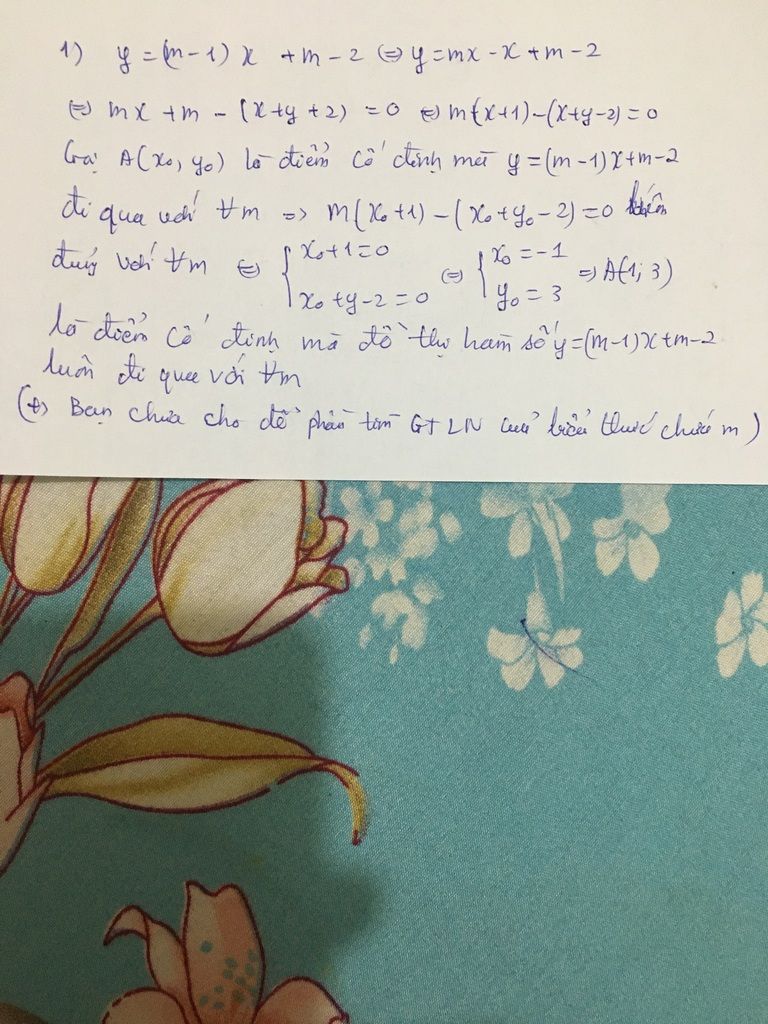 1) y = (m-1) x + m - 2 ⇔ y = mx - x + m - 2
⇔ mx + m - (x+y+2) = 0 ⇔ m(x+1) - (x+y-2) = 0
Gọi A(x₀, y₀) là điểm cố định mà y = (m-1)x+m-2
đi qua với ∀m => m(x₀+1) - (x₀+y₀-2) = 0
đúng với ∀m ⇔ { x₀+1=0 ; x₀+y-2=0 ⇔ { x₀ = -1 ; y₀ = 3 => A(-1; 3)
là điểm cố định mà đồ thị hàm số y=(m-1)x+m-2
luôn đi qua với ∀m
(+) Bạn chưa cho đề phần tìm GTLN của biểu thức chứa m)